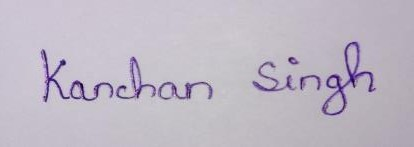 Kanchan Singh